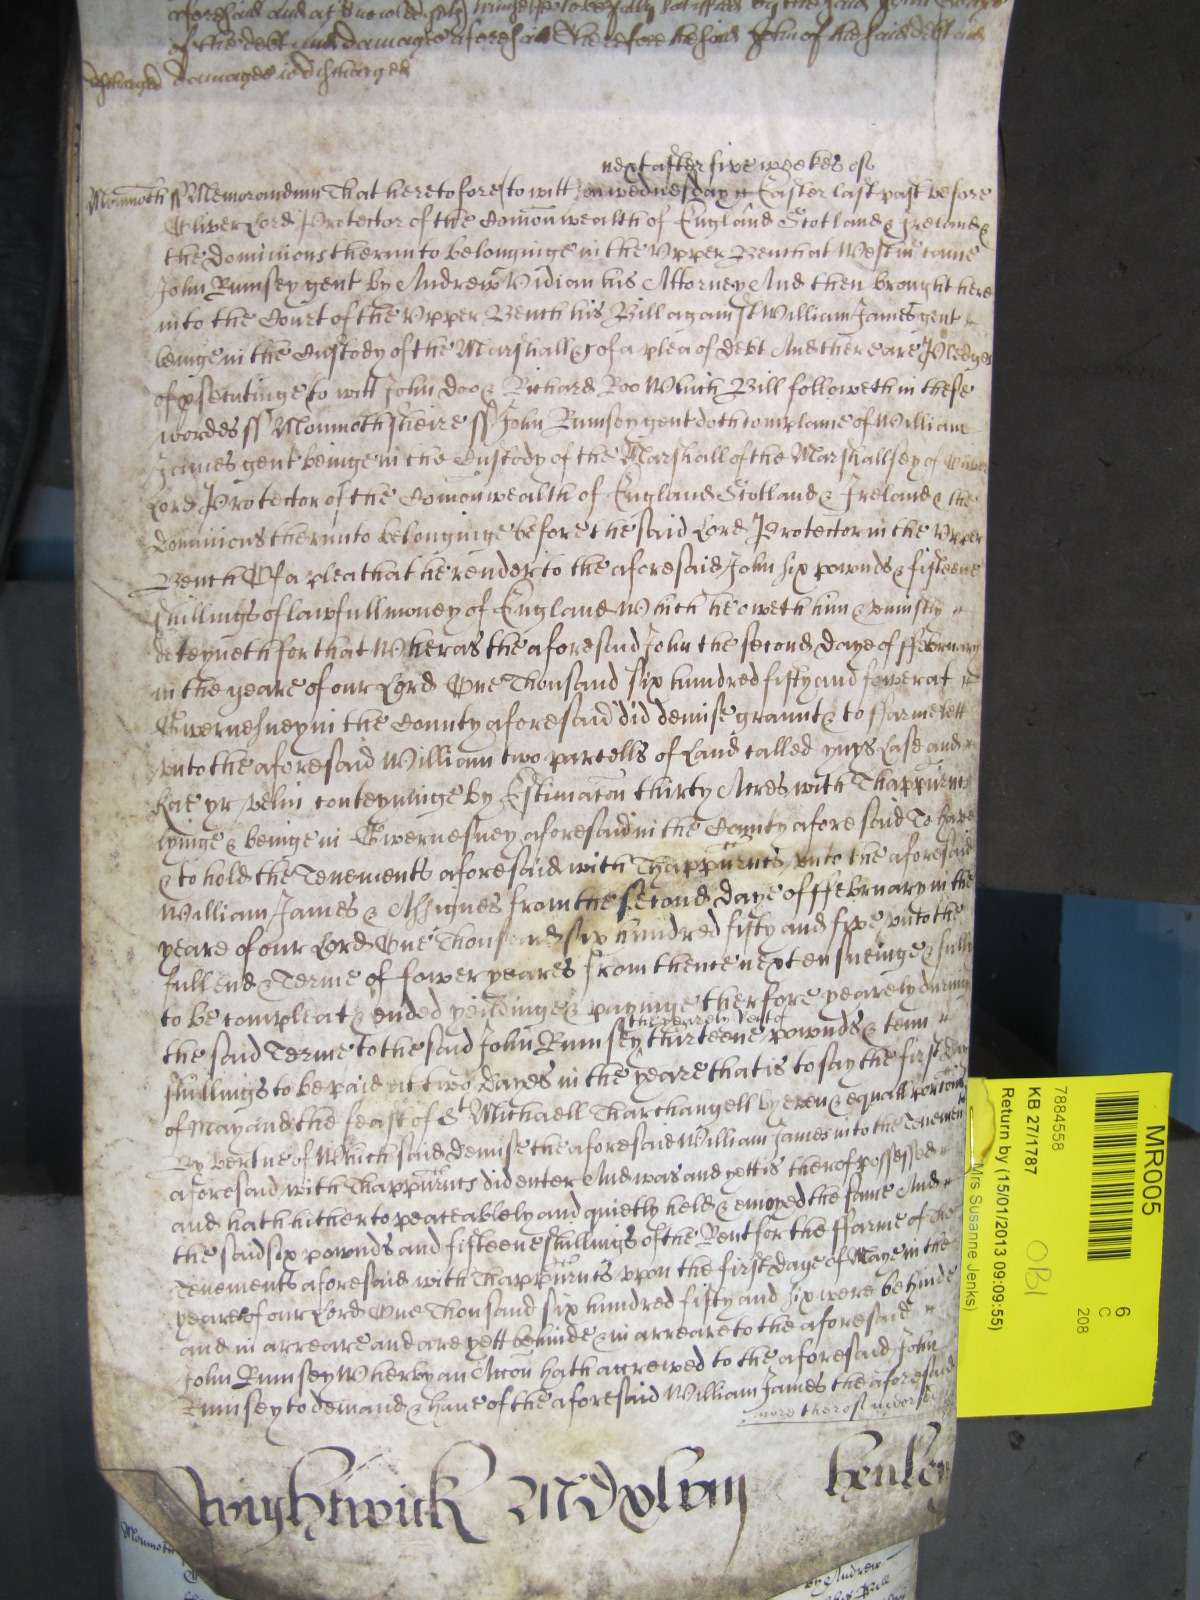 aforesaid and at
of the debt and damages aforesaid Therefore the said John of the said debt and
discharged damages is discharged
next after five weekes of
Monmoth ss Memorandum That heretofore to witt on wednesday Easter last past before
Oliver Lord Protector of the Comonwealth of England Scotland & Ireland &
the dominions therunto belonginge in the Vpper Bench at Westm came
John Rumsey gent by Andrew Vidian his Attorney And then brought here
into the Court of the Vpper Bench his Bill against William James gent
beinge in the Custody of the Marshall &c of a plea of debt And there are Pledges
of psecutinge to witt John Doo & Richard Roo Which Bill followeth in these
wordes ss Monmothsheire ss John Rumsey gent doth complaine of William
James gent beinge in the Custody of the Marshall of the Marshallsey of Oliver
Lord Protector of the Comonwealth of England Scotland & Ireland & the
dominions therunto belonginge before the said Lord Protector in the Vpper
Bench Of a plea that he render to the aforesaid John six pownds & fifteene
shillings of lawfull money of England Which he oweth him & uniustly
deteyneth for that Wheras the aforesaid John the second daye of ffebruary
in the yeare of our Lord One Thousand six hundred fifty and fower at
Gwernesney in the County aforesaid did demise graunt & to ffarme lett
vnto the aforesaid William two parcells of Land called ynys Lase and
Kae yr velin conteyninge by Estimacon thirty Acres with Thappurtncs
lyinge & beinge in Gwernesney aforesaid in the County aforesaid To have
& to hold the Tenements aforesaid with Thappurtncs vnto the aforesaid
William James & Assignes from the second daye of ffebruary in the
yeare of our Lord One Thousand six hundred fifty and five vnto the
full end & Terme of fower yeares from thence next ensueinge & fully
to be compleat & ended yeildinge & payinge therfore yearely during
the yearely Rent of
the said Terme to the said John Rumsey thirteene pownds & tenn
shillings to be paid att two dayes in the yeare that is to say the first day
of May and the feast of St Michaell Tharchangell by even & equall porcons
By vertue of Which said demise the aforesaid William James into the Tenements
aforesaid with Thappurtncs did enter And was and yett is therof possessed
and hath hitherto peaceablely and quietly held & enioyed the same And
the said six pownds and fifteene shillings of the Rent for the ffarme of the
Tenements aforesaid with Thappurtncs vpon the first daye of Maye in the
yeare of our Lord One Thousand six hundred fifty and six were behinde
and in arreare and are yett behinde & in arreare to the aforesaid
John Rumsey Wherby an Accon hath accrewed to the aforesaid John
Rumsey to demand & have of the aforesaid William James the aforesaid
more therof
Wightwick MDxlviij
Monmoth
by Andrew
MR005
6
C
208
7884558
KB 27/1787
Return by (15/01/2013 09:09:55)
Mrs Susanne Jenks)